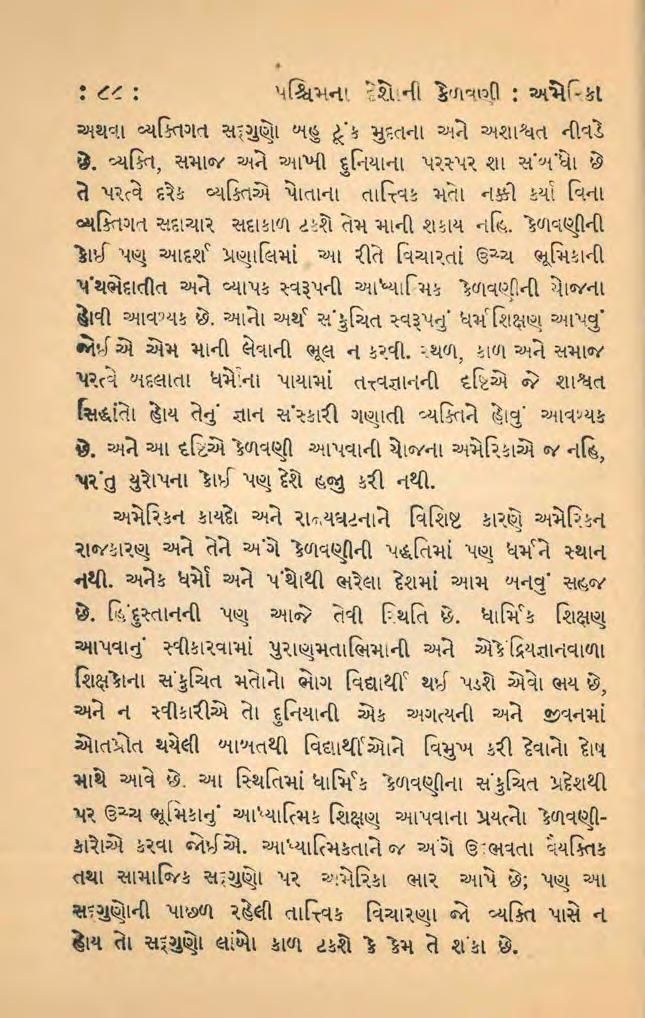 : ૮૮ : પશ્ચિમના દેશોની કેળવણી : અમેરિકા
અથવા વ્યક્તિગત સદ્દગુણો બહુ ટૂંક મુદતના અને અશાશ્વત નીવડે
છે. વ્યક્તિ, સમાજ અને આખી દુનિયાના પરસ્પર શા સંબંધો છે
તે પરત્વે દરેક વ્યક્તિએ પોતાના તાત્ત્વિક મતો નક્કી કર્યા વિના
વ્યક્તિગત સદાચાર સદાકાળ ટકશે તેમ માની શકાય નહિ. કેળવણીની
કોઈ પણ આદર્શ પ્રણાલિમાં આ રીતે વિચારતાં ઉચ્ચ ભૂમિકાની
પંથભેદાતીત અને વ્યાપક સ્વરૂપની આધ્યાત્મિક કેળવણીની યોજના
હોવી આવશ્યક છે. આનો અર્થ સંકુચિત સ્વરૂપનું ધર્મશિક્ષણ આપવું
જોઈએ એમ માની લેવાની ભૂલ ન કરવી. સ્થળ, કાળ અને સમાજ
પરત્વે બદલાતા ધર્મોના પાયામાં તત્ત્વજ્ઞાનની દૃષ્ટિએ જે શાશ્વત
સિદ્ધાંતો હોય તેનું જ્ઞાન સંસ્કારી ગણાતી વ્યક્તિને હોવું આવશ્યક
છે. અને આ દૃષ્ટિએ કેળવણી આપવાની યોજના અમેરિકાએ જ નહિ,
પરંતુ યુરોપના કોઈ પણ દેશે હજુ કરી નથી.
અમેરિકન કાયદો અને રાજ્યઘટનાને વિશિષ્ટ કારણે અમેરિકન
રાજકારણ અને તેને અંગે કેળવણીની પદ્ધતિમાં પણ ધર્મને સ્થાન
નથી. અનેક ધર્મો અને પંથોથી ભરેલા દેશમાં આમ બનવું સહજ
છે. હિંદુસ્તાનની પણ આજે તેવી સ્થિતિ છે. ધાર્મિક શિક્ષણ
આપવાનું સ્વીકારવામાં પુરાણમતાભિમાની અને એકેંદ્રિયજ્ઞાનવાળા
શિક્ષકોના સંકુચિત મતોનો ભોગ વિદ્યાર્થી થઈ પડશે એવો ભય છે,
અને ન સ્વીકારીએ તો દુનિયાની એક અગત્યની અને જીવનમાં
ઓતપ્રોત થયેલી બાબતથી વિદ્યાર્થીઓને વિમુખ કરી દેવાનો દોષ
માથે આવે છે. આ સ્થિતિમાં ધાર્મિક કેળવણીના સંકુચિત પ્રદેશથી
પર ઉચ્ચ ભૂમિકાનું આધ્યાત્મિક શિક્ષણ આપવાના પ્રયત્નો કેળવણી-
કારોએ કરવા જોઈએ. આધ્યાત્મિકતાને જ અંગે ઉદ્ભવતા વૈયક્તિક
તથા સામાજિક સદ્દગુણો પર અમેરિકા ભાર આપે છે; પણ આ
સદ્દગુણોની પાછળ રહેલી તાત્ત્વિક વિચારણા જો વ્યક્તિ પાસે ન
હોય તો સદ્દગુણો લાંબો કાળ ટકશે કે કેમ તે શંકા છે.